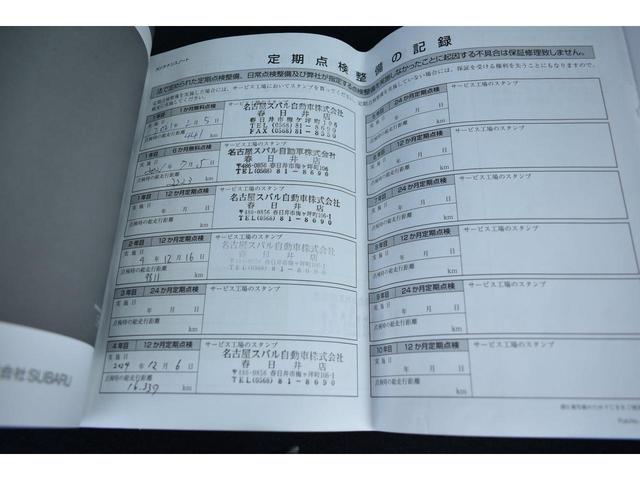 メンテナンスノート
定期点検整備の記録
法で定められた定期点検整備、日常点検整備及び弊社が指定する点検整備を実施しなかったことに起因する不具合は保証修理致しません。
1か月無料点検
サービス工場のスタンプ
名古屋スバル自動車株式会社
春日井店
春日井市梅ケ坪町106
TEL (0568) 81-8690
点検時の総走行距離
km
1年目 6か月無料点検
サービス工場のスタンプ
実施日
名古屋スバル自動車株式会社
春日井店
〒486-0856 春日井市梅ケ坪町106-1
TEL(0568) 81-8690
点検時の総走行距離
km
1年目 12か月定期点検
サービス工場のスタンプ
実施日
年 月 日
名古屋スバル自動車株式会社
春日井店
〒486-0856 春日井市梅ケ坪町106-1
TEL(0568) 81-8690
点検時の総走行距離
km
2年目 12か月定期点検
サービス工場のスタンプ
実施日
4年12月16日
名古屋スバル自動車株式会社
春日井店
点検時の総走行距離
km
3年目 24か月定期点検
サービス工場のスタンプ
実施日
年 月 日
点検時の総走行距離
km
4年目 12か月定期点検
サービス工場のスタンプ
実施日
2024年12月6日
名古屋スバル自動車株式会社
春日井店
〒486-0856 春日井市梅ケ坪町106-1
TEL(0568) 81-8690
点検時の総走行距離
16.339 km
サービス工場のスタンプ
年 月 日
点検時の総走行距離
km
12か月定期点検
サービス工場のスタンプ
年 月 日
点検時の総走行距離
km
7年目 24か月定期点検
サービス工場のスタンプ
実施日
年 月 日
点検時の総走行距離
km
8年目 12か月定期点検
サービス工場のスタンプ
実施日
年 月 日
点検時の総走行距離
km
9年目 24か月定期点検
サービス工場のスタンプ
実施日
年 月 日
点検時の総走行距離
km
10年目 12か月定期点検
サービス工場のスタンプ
実施日
年 月 日
点検時の総走行距離
km
会社SUBARU